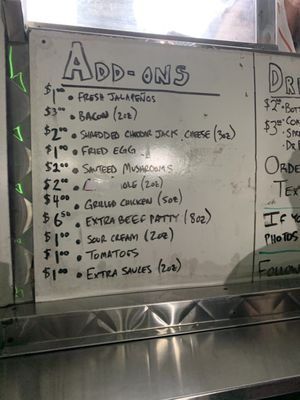 ADD-ONS
$1.00 • FRESH JALAPEÑOS
$3.00 • BACON (2oz)
$2.00 • SHREDDED CHEDDAR JACK CHEESE (3oz)
$1.00 • FRIED EGG
$2.00 • SAUTEED MUSHROOMS
$2.00 • OLE (2oz)
$4.00 • GRILLED CHICKEN (5oz)
$6.50 • EXTRA BEEF PATTY (8oz)
$1.00 • SOUR CREAM (2oz)
$1.00 • TOMATOES
$1.00 • EXTRA SAUCES (2oz)
DRI
$2.00 • BOTT
$3.00 • COK
SPR
DR P
ORDE
TEX
IF YO
PHOTOS
FOLLOW